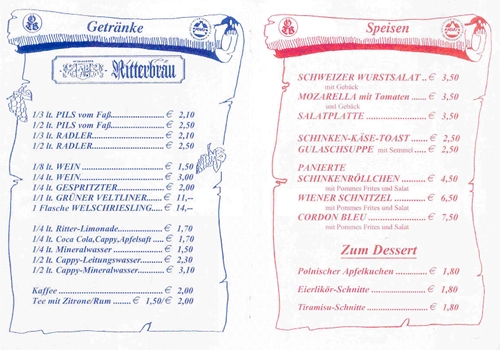 Getränke
Ritterbräu
1/3 lt. PILS vom Faß..................€ 2,10
1/2 lt. PILS vom Faß..................€ 2,50
1/3 lt. RADLER..........................€ 2,10
1/2 lt. RADLER..........................€ 2,50
1/8 lt. WEIN ..............................€ 1,50
1/4 lt. WEIN...............................€ 3,00
1/4 lt. GESPRITZTER................€ 2,00
1/1 lt. GRÜNER VELTLINER....€ 11,--
1 Flasche WELSCHRIESLING...€ 14,--
1/4 lt. Ritter-Limonade...............€ 1,70
1/4 lt. Coca Cola,Cappy,Apfelsaft ...€ 1,70
1/4 lt. Mineralwasser..................€ 1,50
1/2 lt. Cappy-Leitungswasser........€ 2,30
1/2 lt. Cappy-Mineralwasser.........€ 3,10
Kaffee ......................................€ 2,00
Tee mit Zitrone/Rum ........€ 1,50/€ 2,00
Speisen
SCHWEIZER WURSTSALAT ..€ 3,50
mit Gebäck
MOZARELLA mit Tomaten ....€ 3,50
und Gebäck
SALATPLATTE .....................€ 3,50
SCHINKEN-KÄSE-TOAST ......€ 2,50
GULASCHSUPPE mit Semmel .....€ 2,50
PANIERTE
SCHINKENRÖLLCHEN ..........€ 4,50
mit Pommes Frites und Salat
WIENER SCHNITZEL .............€ 6,50
mit Pommes Frites und Salat
CORDON BLEU .....................€ 7,50
mit Pommes Frites und Salat
Zum Dessert
Polnischer Apfelkuchen ............€ 1,80
Eierlikör-Schnitte ....................€ 1,80
Tiramisu-Schnitte ....................€ 1,80